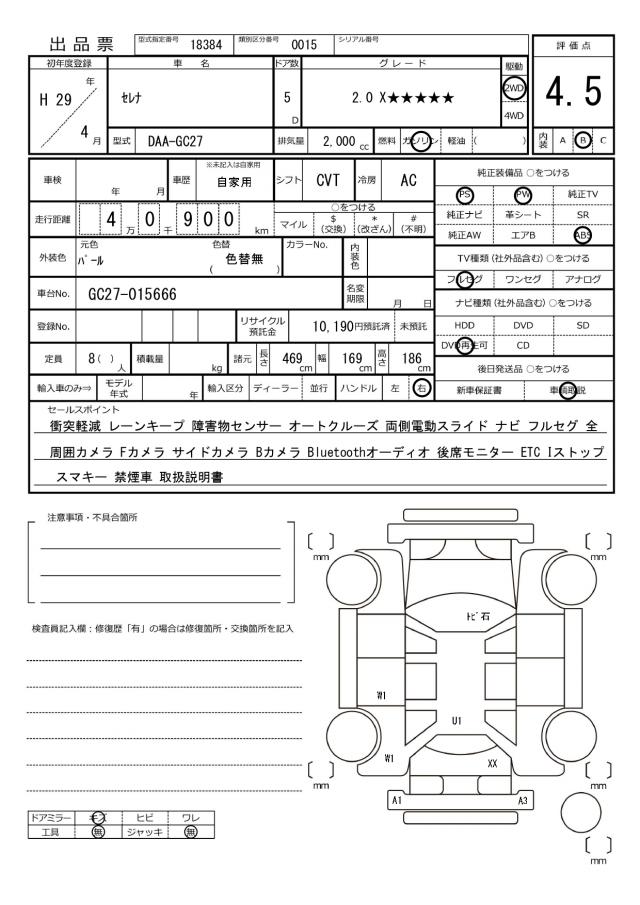 出品票 型式指定番号 18384 類別区分番号 0015 シリアル番号
評価点
4.5
内装 A B C
初年度登録 車名 ドア数 グレード 駆動
H 29 年 4 月
セレナ 5 D 2.0 X★★★★★ 2WD 4WD
型式 DAA-GC27 排気量 2,000 cc 燃料 ガソリン 軽油 ( )
車検 年 月 車歴 ※未記入は自家用 自家用 シフト CVT 冷房 AC
純正装備品 ○をつける
PS PW 純正TV
純正ナビ 革シート SR
純正AW エアB ABS
走行距離 4 万 0 千 9 0 0 km
○をつける
マイル $ (交換) * (改ざん) # (不明)
外装色 元色 パール 色替 色替無 ( ) カラーNo. 内装色
TV種類 (社外品含む) ○をつける
フルセグ ワンセグ アナログ
車台No. GC27-015666 名変期限 月 日
ナビ種類 (社外品含む) ○をつける
HDD DVD SD
DVD再生可 CD
登録No. リサイクル預託金 10,190円預託済 未預託
定員 8 ( ) 人 積載量 kg 諸元 長さ 469 cm 幅 169 cm 高さ 186 cm
後日発送品 ○をつける
新車保証書 車輌取説
輸入車のみ⇒ モデル年式 年 輸入区分 ディーラー 並行 ハンドル 左 右
セールスポイント
衝突軽減 レーンキープ 障害物センサー オートクルーズ 両側電動スライド ナビ フルセグ 全
周囲カメラ Fカメラ サイドカメラ Bカメラ Bluetoothオーディオ 後席モニター ETC Iストップ
スマキー 禁煙車 取扱説明書
注意事項・不具合箇所
検査員記入欄：修復歴「有」の場合は修復箇所・交換箇所を記入
mm mm
トビ石
W1
U1
W1 XX
mm mm
A1 A3
mm
ドアミラー キズ ヒビ ワレ
工具 無 ジャッキ 無